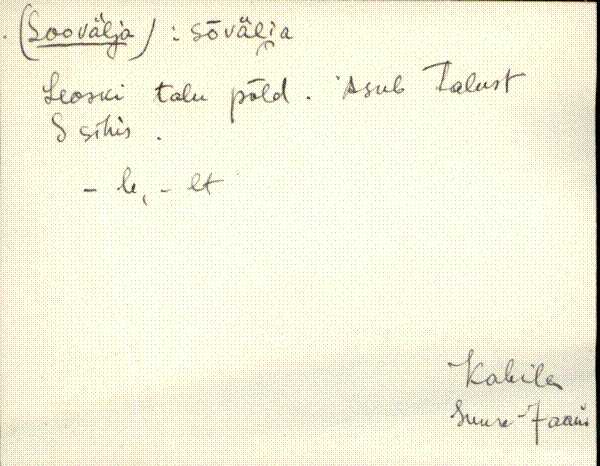 (Soovälja) : sōväľi̯a
Leoski talu põld. Asub talust
S sihis.
– le, – lt
Kabila
Suure-Jaani